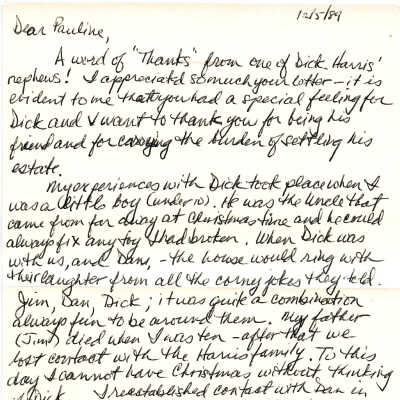 12/5/89
Dear Pauline,
A word of "Thanks" from one of Dick Harris'
nephews! I appreciated so much your letter - it is
evident to me that you had a special feeling for
Dick and I want to thank you for being his
friend and for carrying the burden of settling his
estate.
My experiences with Dick took place when I
was a little boy (under 10). He was the Uncle that
came from far away at Christmas time and he could
always fix any toy I had broken. When Dick was
with us, and Dan, - the house would ring with
their laughter from all the corney jokes they told.
Jim, Dan, Dick; it was quite a combination
always fun to be around them. My father
(Jim) died when I was ten - after that we
lost contact with the Harris family. To this
day I cannot have Christmas without thinking
of Dick. I reestablished contact with Dan in